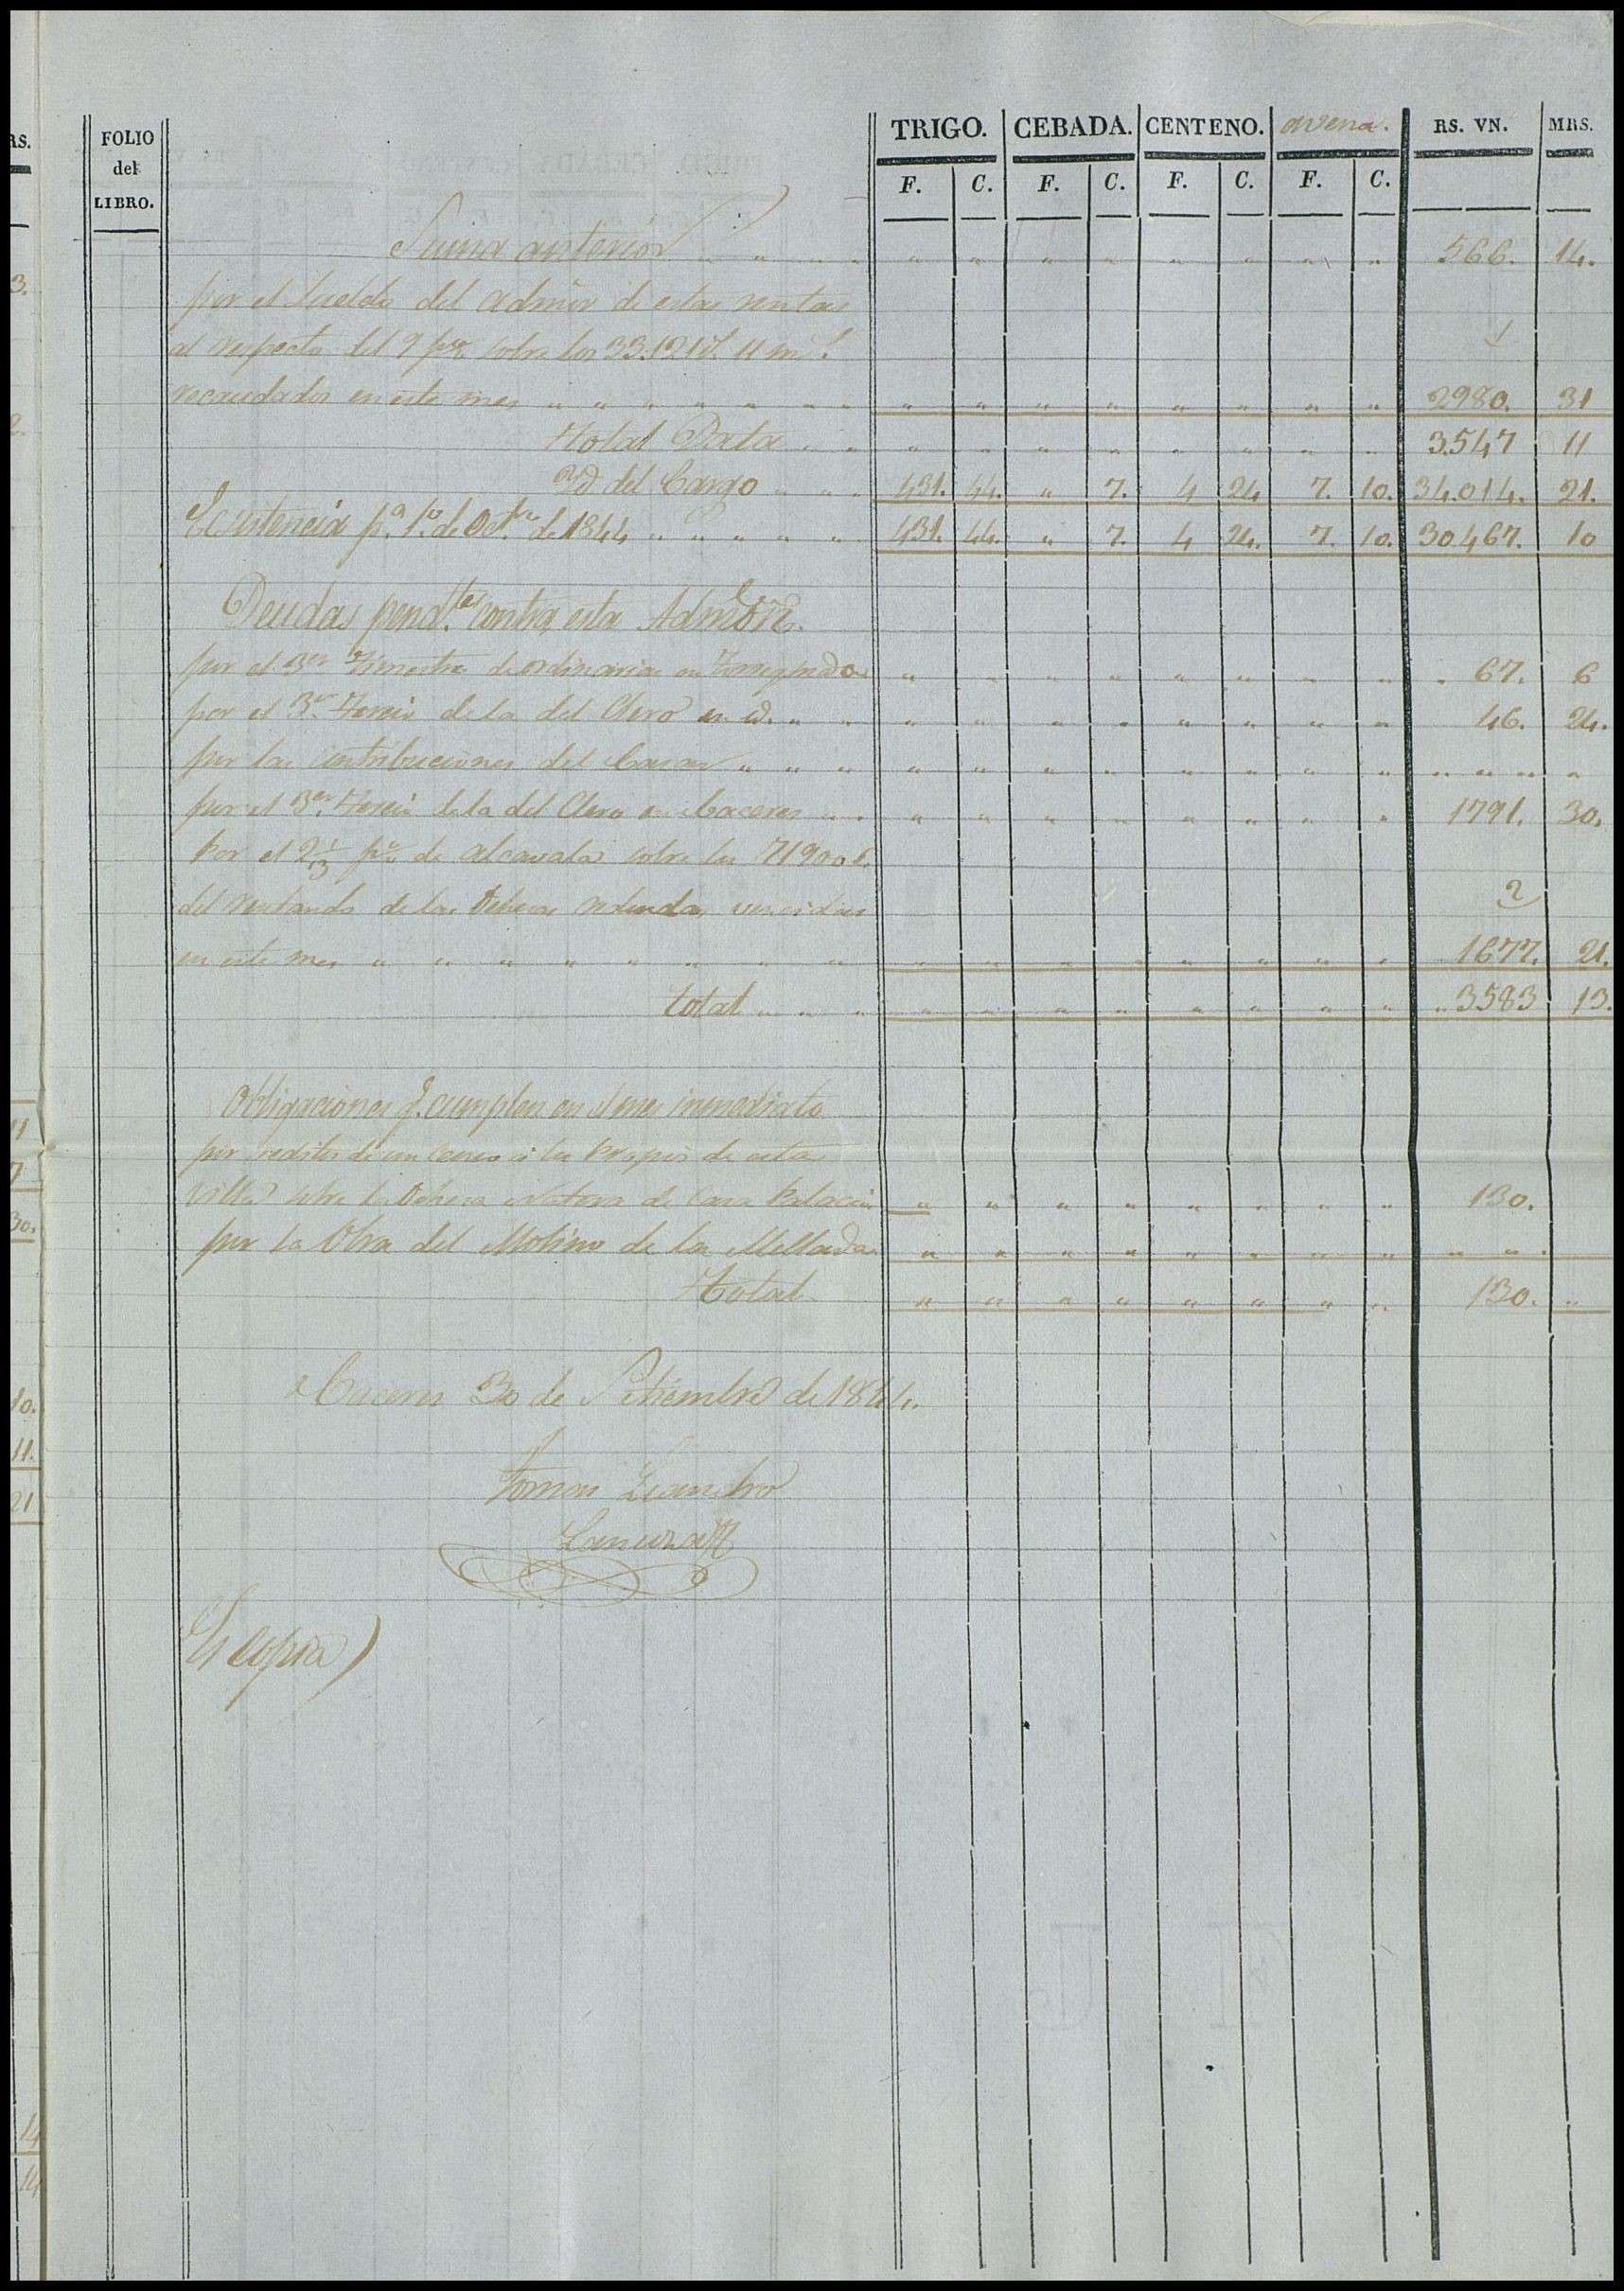 FOLIO del LIBRO. TRIGO. CEBADA. CENTENO. Avena. RS. VN. MRS.
F. C. F. C. F. C. F. C.
Suma anterior 566. 14.
por el sueldo del Admor de estas rentas
al respecto del 9 p% sobre los 33.121 rs. 11 ms.
recaudados en este mes 2980. 31
Total Data 3.547 11
Yd. del Cargo 431. 44. " 7. 4 24 7. 10. 34.014. 21.
Existencia pa. 1o. de Octre. de 1844 431. 44. " 7. 4 24. 7. 10. 30.467. 10
Deudas pendtes. contra esta Admon.
por el 3er trimestre de ordinaria en 67. 6
por el 3er. Tercio de la del Clero en id. 46. 24.
por las contribuciones del Casar
por el 3er. Tercio de la del Clero en Caceres 1791. 30.
Por el 2 1/3 p% de alcavala sobre los 71900 rs.
del rentando de las Dehesas vencidas
en este mes 1677. 21.
total 3583 13.
Obligaciones q. cumplen en el mes inmediato
por reditos de un censo a los Propios de esta
Villa sobre la Dehesa de Casa 130.
por la Obra del Molino de la Mellada
Total 130. "
Caceres 30 de Setiembre de 1844.
Tomas Leandro
Lanuza
Es copia